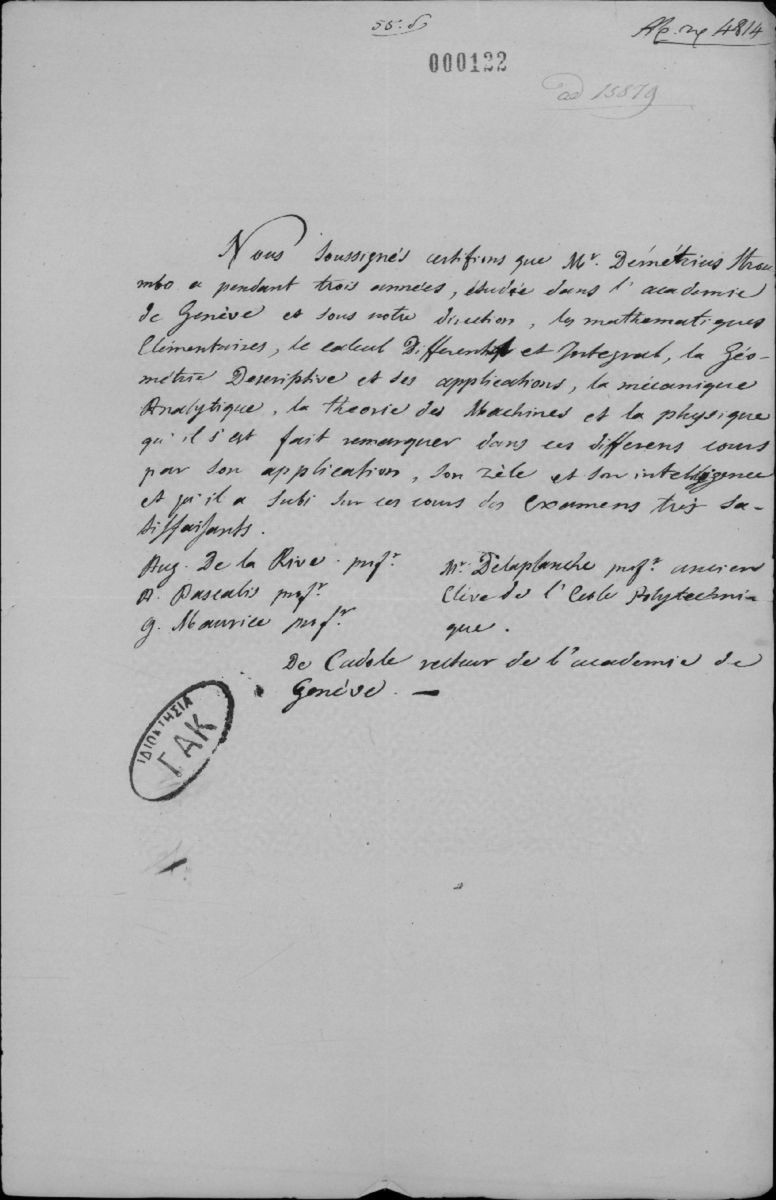 55. δ
Αρ. πρ 4814
000122
ad 15879
Nous soussignés certifions que Mr. Démétrius Strou
mbo a pendant trois années, étudié dans l'academie
de Genève et sous notre direction, les mathematiques
Elémentaires, le calcul Differentiel et Integral, la Géo-
métrie Descriptive et ses applications, la mécanique
Analytique, la theorie des Machines et la physique
qu'il s'est fait remarquer dans ces differens cours
par son application, son zèle et son intelligence
et qu'il a subi sur ces cours des Examens très sa-
tisfaisants.
Aug. De la Rive profr.
A. Pascalis profr.
G. Maurice profr.
Mr. Délaplanche profr. ancien
Elève de l'Ecole Polytechni-
que.
De Cadole recteur de l'academie de
Genève. —
ΙΔΙΟΚΤΗΣΙΑ
ΓΑΚ